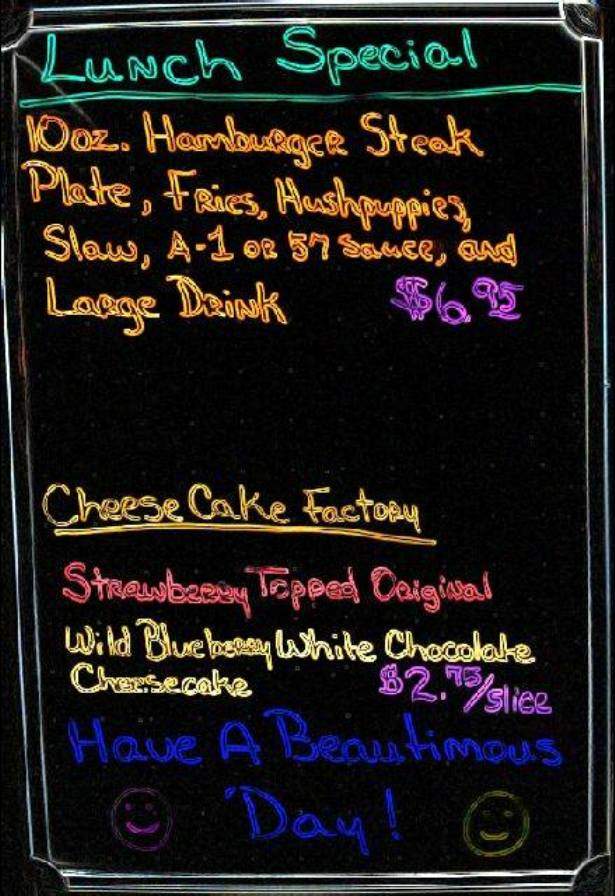 Lunch Special
10oz. Hamburger Steak
Plate, Fries, Hushpuppies,
Slaw, A-1 or 57 Sauce, and
Large Drink $6.95
Cheese Cake Factory
Strawberry Topped Original
Wild Blueberry White Chocolate
Cheesecake $2.75/slice
Have A Beautimous
Day!